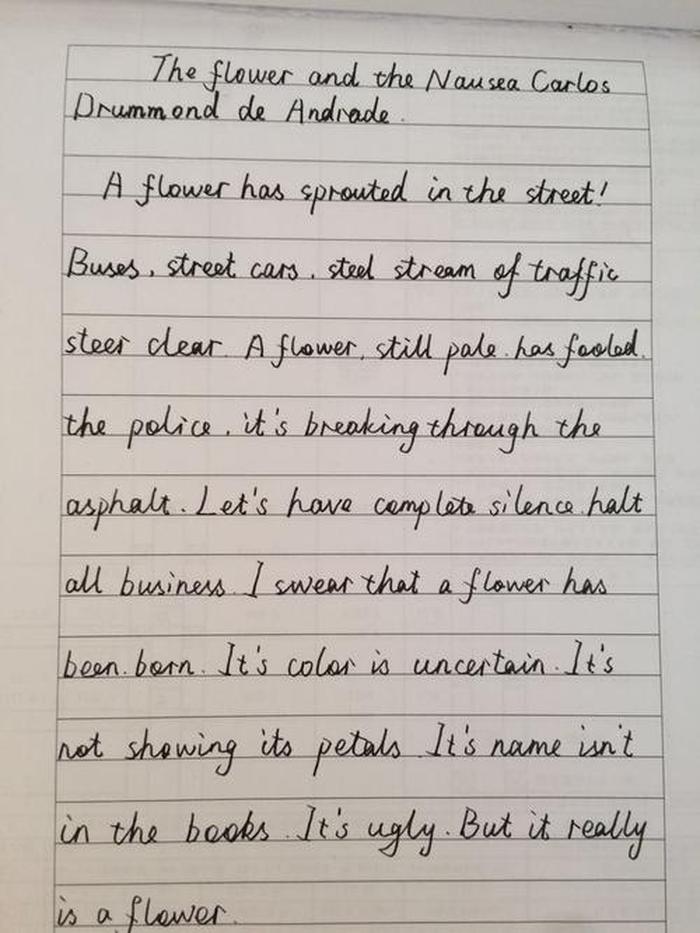 The flower and the Nausea Carlos
Drummond de Andrade.
A flower has sprouted in the street!
Buses, street cars, steel stream of traffic
steer clear. A flower, still pale, has fooled
the police, it's breaking through the
asphalt. Let's have complete silence, halt
all business. I swear that a flower has
been born. It's color is uncertain. It's
not showing its petals. It's name isn't
in the books. It's ugly. But it really
is a flower.